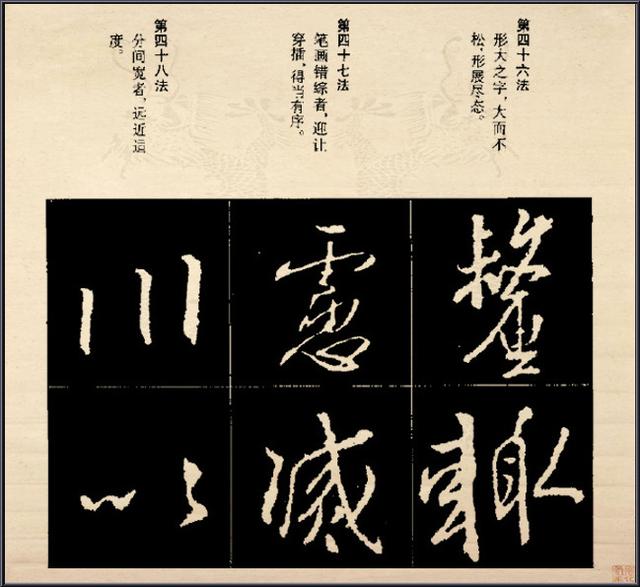 第四十六法
形大之字，大而不
松，形展尽态。
第四十七法
笔画错综者，迎让
穿插，得当有序。
第四十八法
分间宽者，远近适
度。
川
以
灵
减